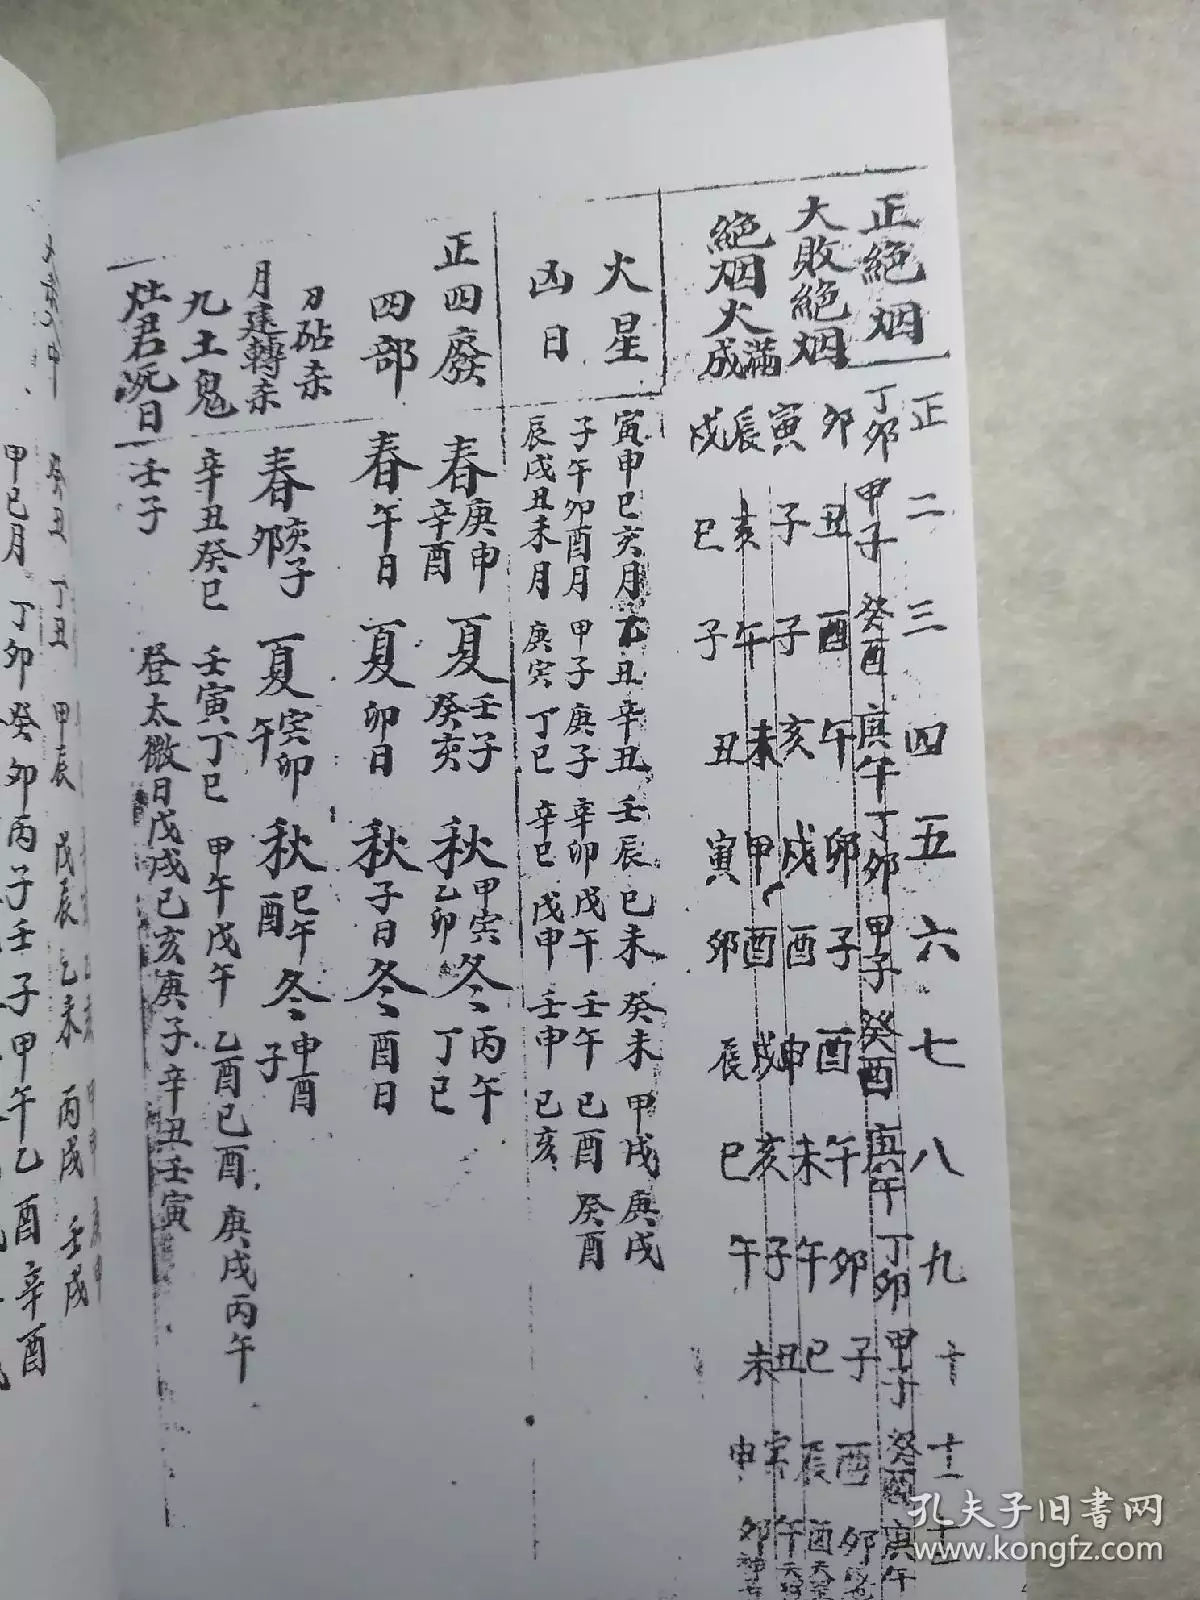 正 二 三 四 五 六 七 八 九 十 十一 十二
正絕烟 丁卯 甲子 癸酉 庚午 丁卯 甲子 癸酉 庚午 丁卯 甲子 癸酉 庚午
大敗絕烟 卯 丑 酉 午 卯 子 酉 午 卯 子 酉 卯
寅 子 子 亥 戌 酉 申 未 午 巳 辰 酉
絕烟火滿 辰 亥 午 未 甲 酉 戌 亥 子 丑 寅 午
成 戌 巳 子 丑 寅 卯 辰 巳 午 未 申 卯
火星 寅申巳亥月 乙丑 辛丑 壬辰 己未 癸未 甲戌 庚戌
子午卯酉月 甲子 庚子 辛卯 戊午 壬午 己酉 癸酉
凶日 辰戌丑未月 庚寅 丁巳 辛巳 戊申 壬申 己亥
正四廢 春庚申辛酉 夏壬子癸亥 秋甲寅乙卯 冬丙午丁巳
四部 春午日 夏卯日 秋子日 冬酉日
刀砧杀 春亥子 夏寅卯 秋巳午 冬申酉
月建轉杀 卯 午 酉 子
九土鬼 辛丑 癸巳 壬寅 丁巳 甲午 戊午 乙酉 己酉 庚戌 丙午
灶君死日 壬子 登太微日 戊戌 己亥 庚子 辛丑 壬寅
癸丑 丁丑 甲辰 戊辰 乙未 丙戌 壬戌
甲己月 丁卯 癸卯 丙子 壬子 甲午 乙酉 辛酉
孔夫子旧书网
www.kongfz.com